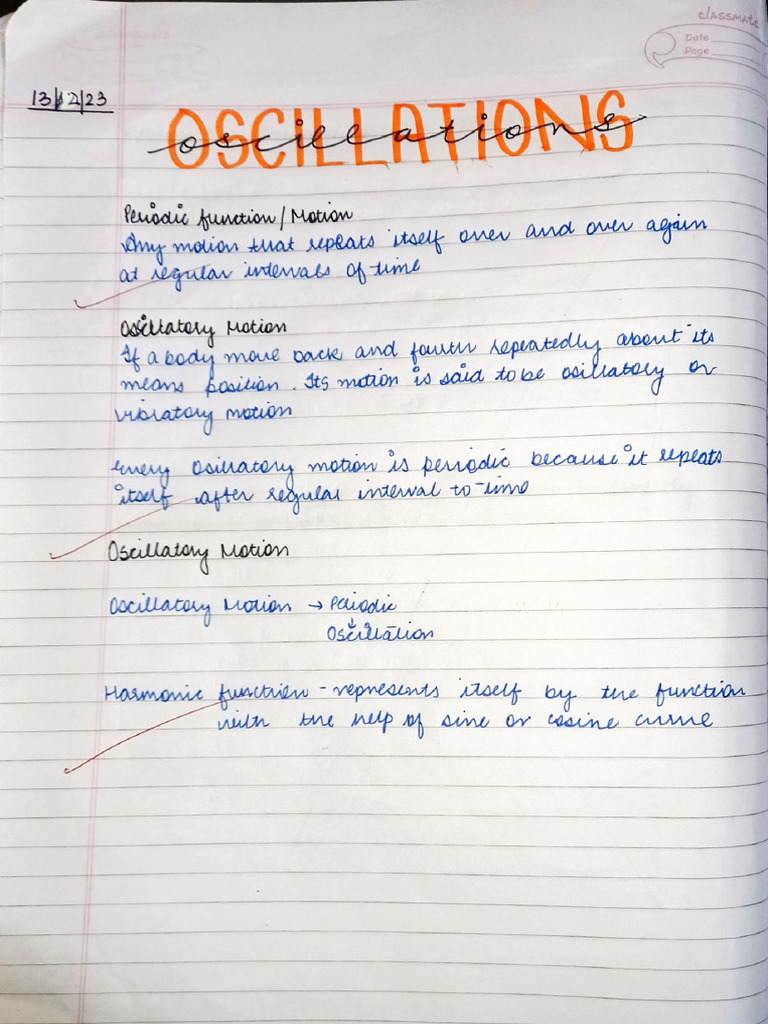 classmate
Date
Page
13/12/23
OSCILLATIONS
oscillations
Periodic function/Motion
Any motion that repeats itself over and over again
at regular intervals of time
Oscillatory Motion
If a body move back and fourth repeatedly about its
means position. Its motion is said to be osillatory or
vibratory motion
Every osillatory motion is periodic because it repeats
itself after regular interval to time
Oscillatory Motion
Oscillatory Motion → Periodic
↓
Oscillation
Harmonic function - represents itself by the function
with the help of sine or cosine curve